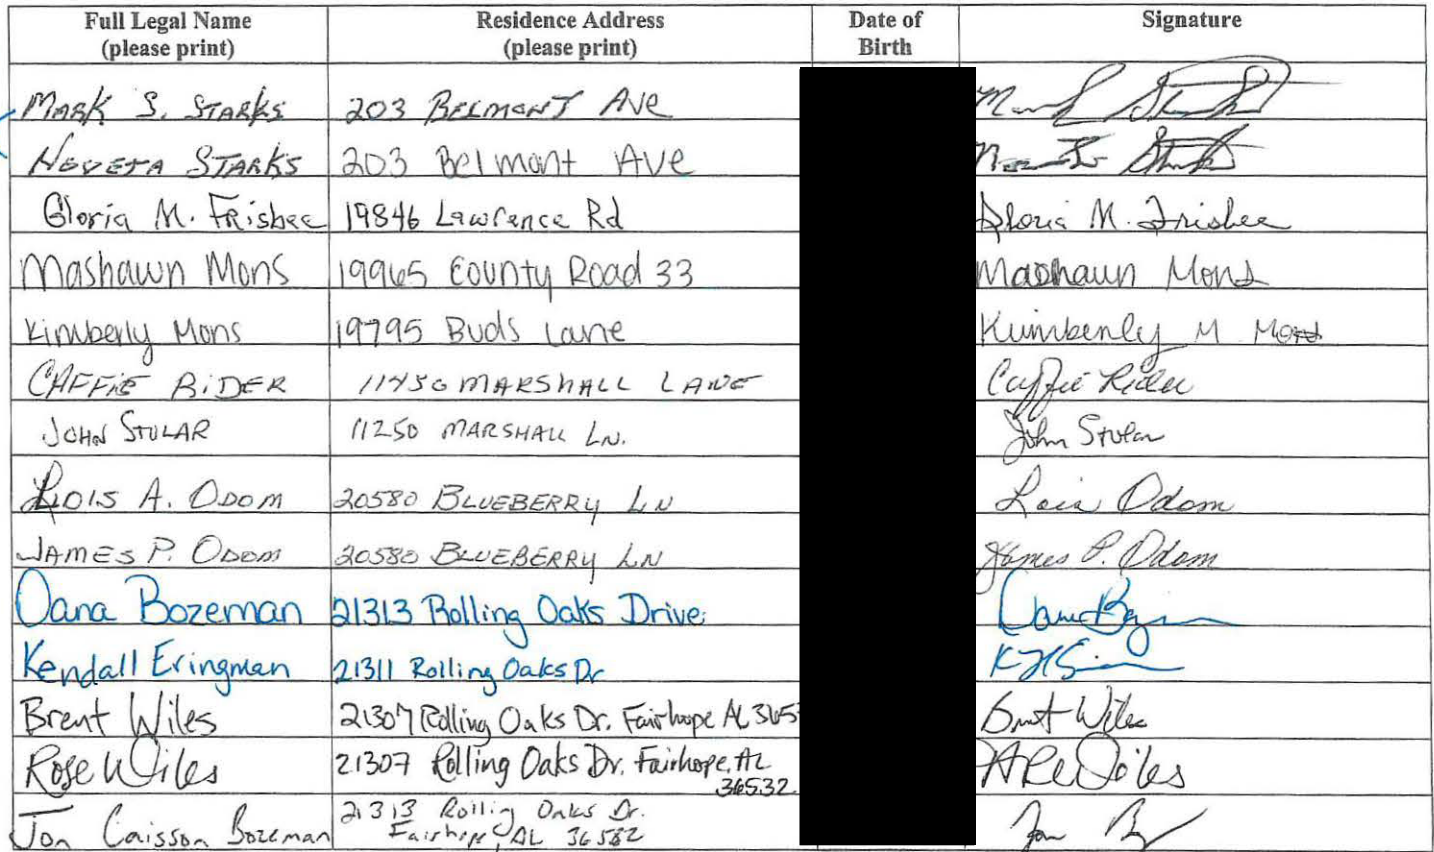 Full Legal Name (please print) Residence Address (please print) Date of Birth Signature
MARK S. STARKS 203 BELMONT AVE
NEVETA STARKS 203 Belmont AVE
Gloria M. Frisbee 19846 Lawrence Rd Gloria M. Frisbee
Mashawn Mons 19965 County Road 33 Mashawn Mons
Kimberly Mons 19795 Buds Lane Kimberly M Mons
CAFFIE RIDER 11450 MARSHALL LANE Caffie Rider
JOHN STULAR 11250 MARSHALL LN. John Stular
LOIS A. ODOM 20580 BLUEBERRY LN Lois Odom
JAMES P. ODOM 20580 BLUEBERRY LN James P. Odom
Dana Bozeman 21313 Rolling Oaks Drive
Kendall Eringman 21311 Rolling Oaks Dr
Brent Wiles 21307 Rolling Oaks Dr. Fairhope AL 3653 Brent Wiles
Rose Wiles 21307 Rolling Oaks Dr. Fairhope, AL 36532 Wiles
Jon Caisson Bozeman 21313 Rolling Oaks Dr. Fairhope, AL 36532